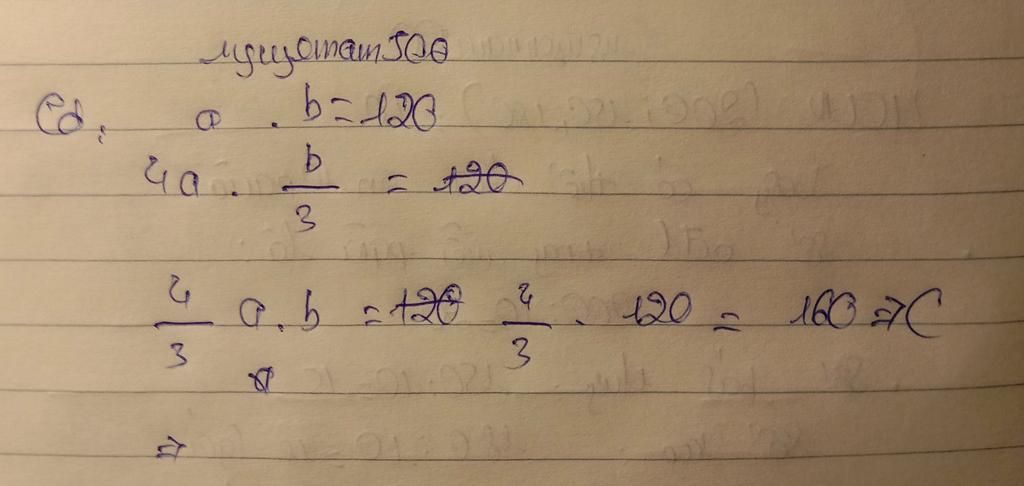 nguyentam500
Có: a . b = 120
4a . b/3 = 120
4/3 a . b = 120 4/3 . 120 = 160 => C
=>